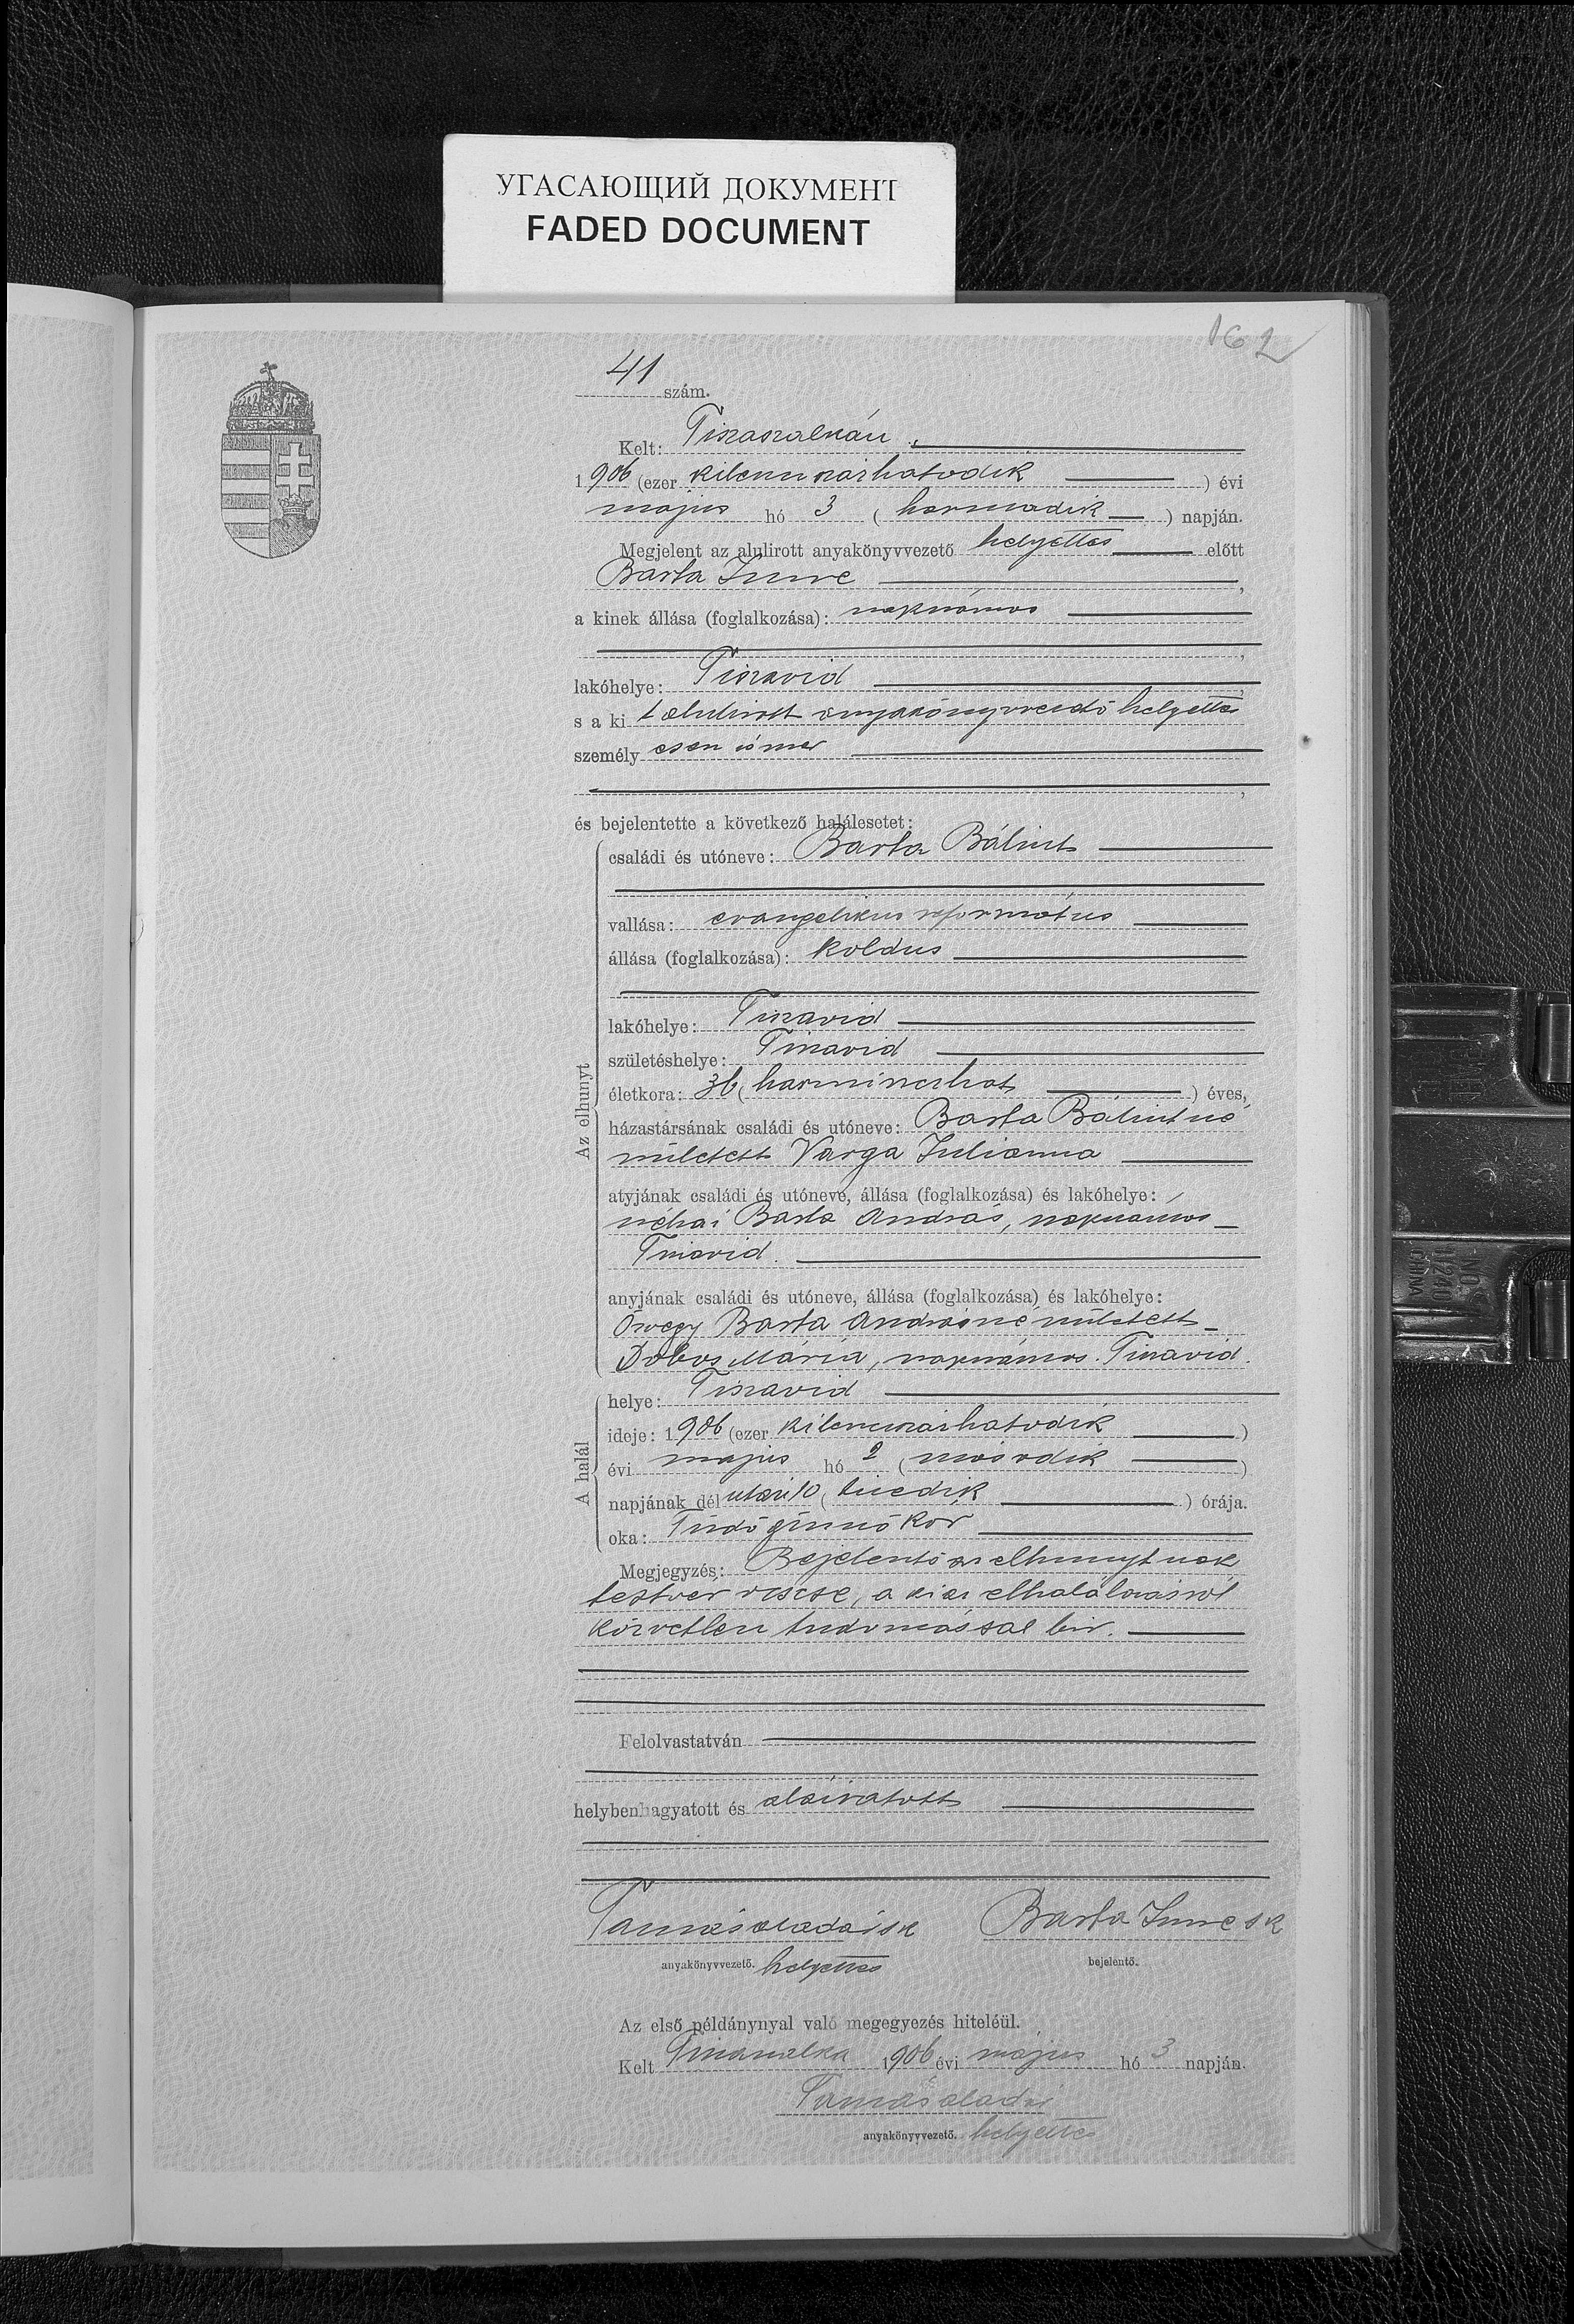 УГАСАЮЩИЙ ДОКУМЕНТ
FADED DOCUMENT
162
41 szám.
Kelt: Tiszaszalkán,
1906 (ezer kilenczszázhatodik) évi
május hó 3 (harmadik) napján.
Megjelent az alulirott anyakönyvvezető helyettes előtt
Barta Imre,
a kinek állása (foglalkozása): napszámos
,
lakóhelye: Tiszavid,
s a ki t alulirott anyakönyvvezető helyettes
személyesen ismer
,
és bejelentette a következő halálesetet:
Az elhunyt
családi és utóneve: Barta Bálint
vallása: evangelikus református
állása (foglalkozása): koldus
lakóhelye: Tiszavid
születéshelye: Tiszavid
életkora: 36 (harminczhat) éves,
házastársának családi és utóneve: Barta Bálintné
született Varga Julianna
atyjának családi és utóneve, állása (foglalkozása) és lakóhelye:
néhai Barta András, napszámos
Tiszavid.
anyjának családi és utóneve, állása (foglalkozása) és lakóhelye:
Özvegy Barta Andrásné született
Dobos Mária, napszámos. Tiszavid.
A halál
helye: Tiszavid
ideje: 1906 (ezer kilenczszázhatodik)
évi május hó 2 (második)
napjának dél utáni 10 (tizedik) órája.
oka: Tüdőgümőkór
Megjegyzés: Bejelentő az elhunytnak
testvér öccse, a ki az elhalálozásról
közvetlen tudomással bir.
Felolvastatván
helybenhagyatott és aláiratott
Tamás sk Barta Imre sk
anyakönyvvezető. helyettes bejelentő.
Az első példánynyal való megegyezés hiteléül.
Kelt Tiszaszalka 1906 évi május hó 3 napján.
Tamás
anyakönyvvezető. helyettes